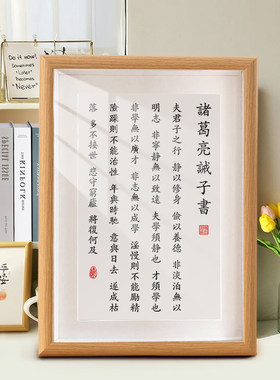 DO it now!
Sometimes
"Later"
becomes
"Never"
KINFOLK
諸葛亮誡子書
夫君子之行 靜以修身 儉以養德 非淡泊無以
明志 非寧靜無以致遠 夫學須靜也 才須學也
非學無以廣才 非志無以成學 淫慢則不能勵精
險躁則不能治性 年與時馳 意與日去 遂成枯
落 多不接世 悲守窮廬 將復何及